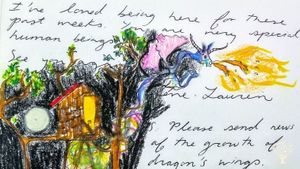 I've loved being here for these
past weeks.
human beings are very special
See
Lauren
Please send news
of the growth of
dragon's wings.